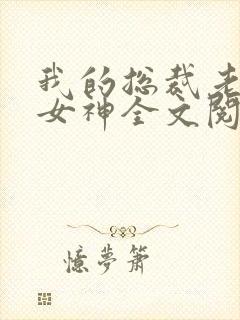 我的总裁老
女神全文阅
憶夢簫